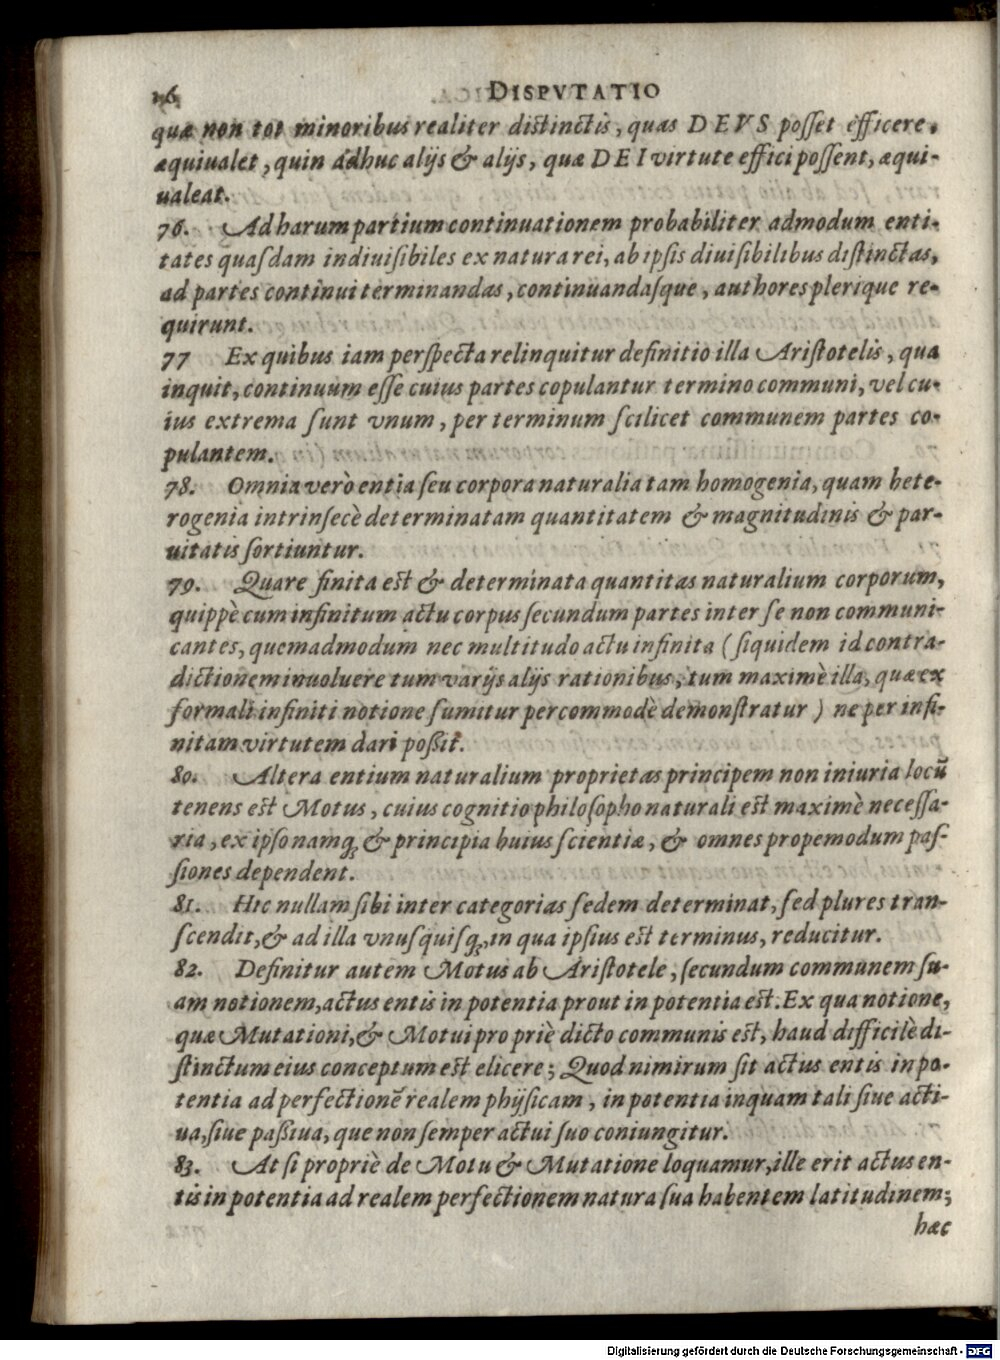 16 DISPVTATIO
quæ non tot minoribus realiter distinctis, quas DEVS posset efficere,
æquiualet, quin adhuc alijs & alijs, quæ DEI virtute effici possent, æqui-
ualeat.
76. Ad harum partium continuationem probabiliter admodum enti-
tates quasdam indiuisibiles ex natura rei, ab ipsis diuisibilibus distinctas,
ad partes continui terminandas, continuandasque, authores plerique re-
quirunt.
77 Ex quibus iam perspecta relinquitur definitio illa Aristotelis, qua
inquit, continuum esse cuius partes copulantur termino communi, vel cu-
ius extrema sunt vnum, per terminum scilicet communem partes co-
pulantem.
78. Omnia verò entia seu corpora naturalia tam homogenia, quam hete-
rogenia intrinsecè determinatam quantitatem & magnitudinis & par-
uitatis sortiuntur.
79. Quare finita est & determinata quantitas naturalium corporum,
quippè cum infinitum actu corpus secundum partes inter se non communi-
cantes, quemadmodum nec multitudo actu infinita (siquidem id contra-
dictionem inuoluere tum varijs alijs rationibus, tum maximè illa, quæ ex
formali infiniti notione sumitur percommodè demonstratur) ne per infi-
nitam virtutem dari possit.
80. Altera entium naturalium proprietas principem non iniuria locũ
tenens est Motus, cuius cognitio philosopho naturali est maximè necessa-
ria, ex ipso namq; & principia huius scientiæ, & omnes propemodum pas-
siones dependent.
81. Hic nullam sibi inter categorias sedem determinat, sed plures tran-
scendit, & ad illa vnusquisq;, in qua ipsius est terminus, reducitur.
82. Definitur autem Motus ab Aristotele, secundum communem su-
am notionem, actus entis in potentia prout in potentia est. Ex qua notione,
quæ Mutationi, & Motui propriè dicto communis est, haud difficilè di-
stinctum eius conceptum est elicere; Quod nimirum sit actus entis in po-
tentia ad perfectionẽ realem physicam, in potentia inquam tali siue acti-
ua, siue passiua, que non semper actui suo coniungitur.
83. At si propriè de Motu & Mutatione loquamur, ille erit actus en-
tis in potentia ad realem perfectionem natura sua habentem latitudinem;
hæc
Digitalisierung gefördert durch die Deutsche Forschungsgemeinschaft - DFG